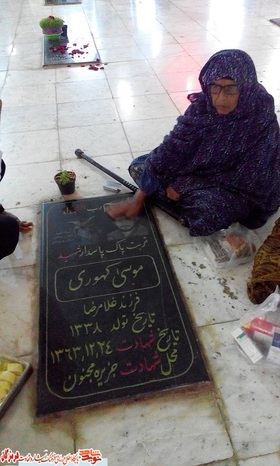 تربت پاک پاسدار شهید
موسی کهوری
فرزند غلامرضا
تاریخ تولد ۱۳۳۸
تاریخ شهادت ۱۳۶۳,۱۲,۲۴
محل شهادت جزیره مجنون